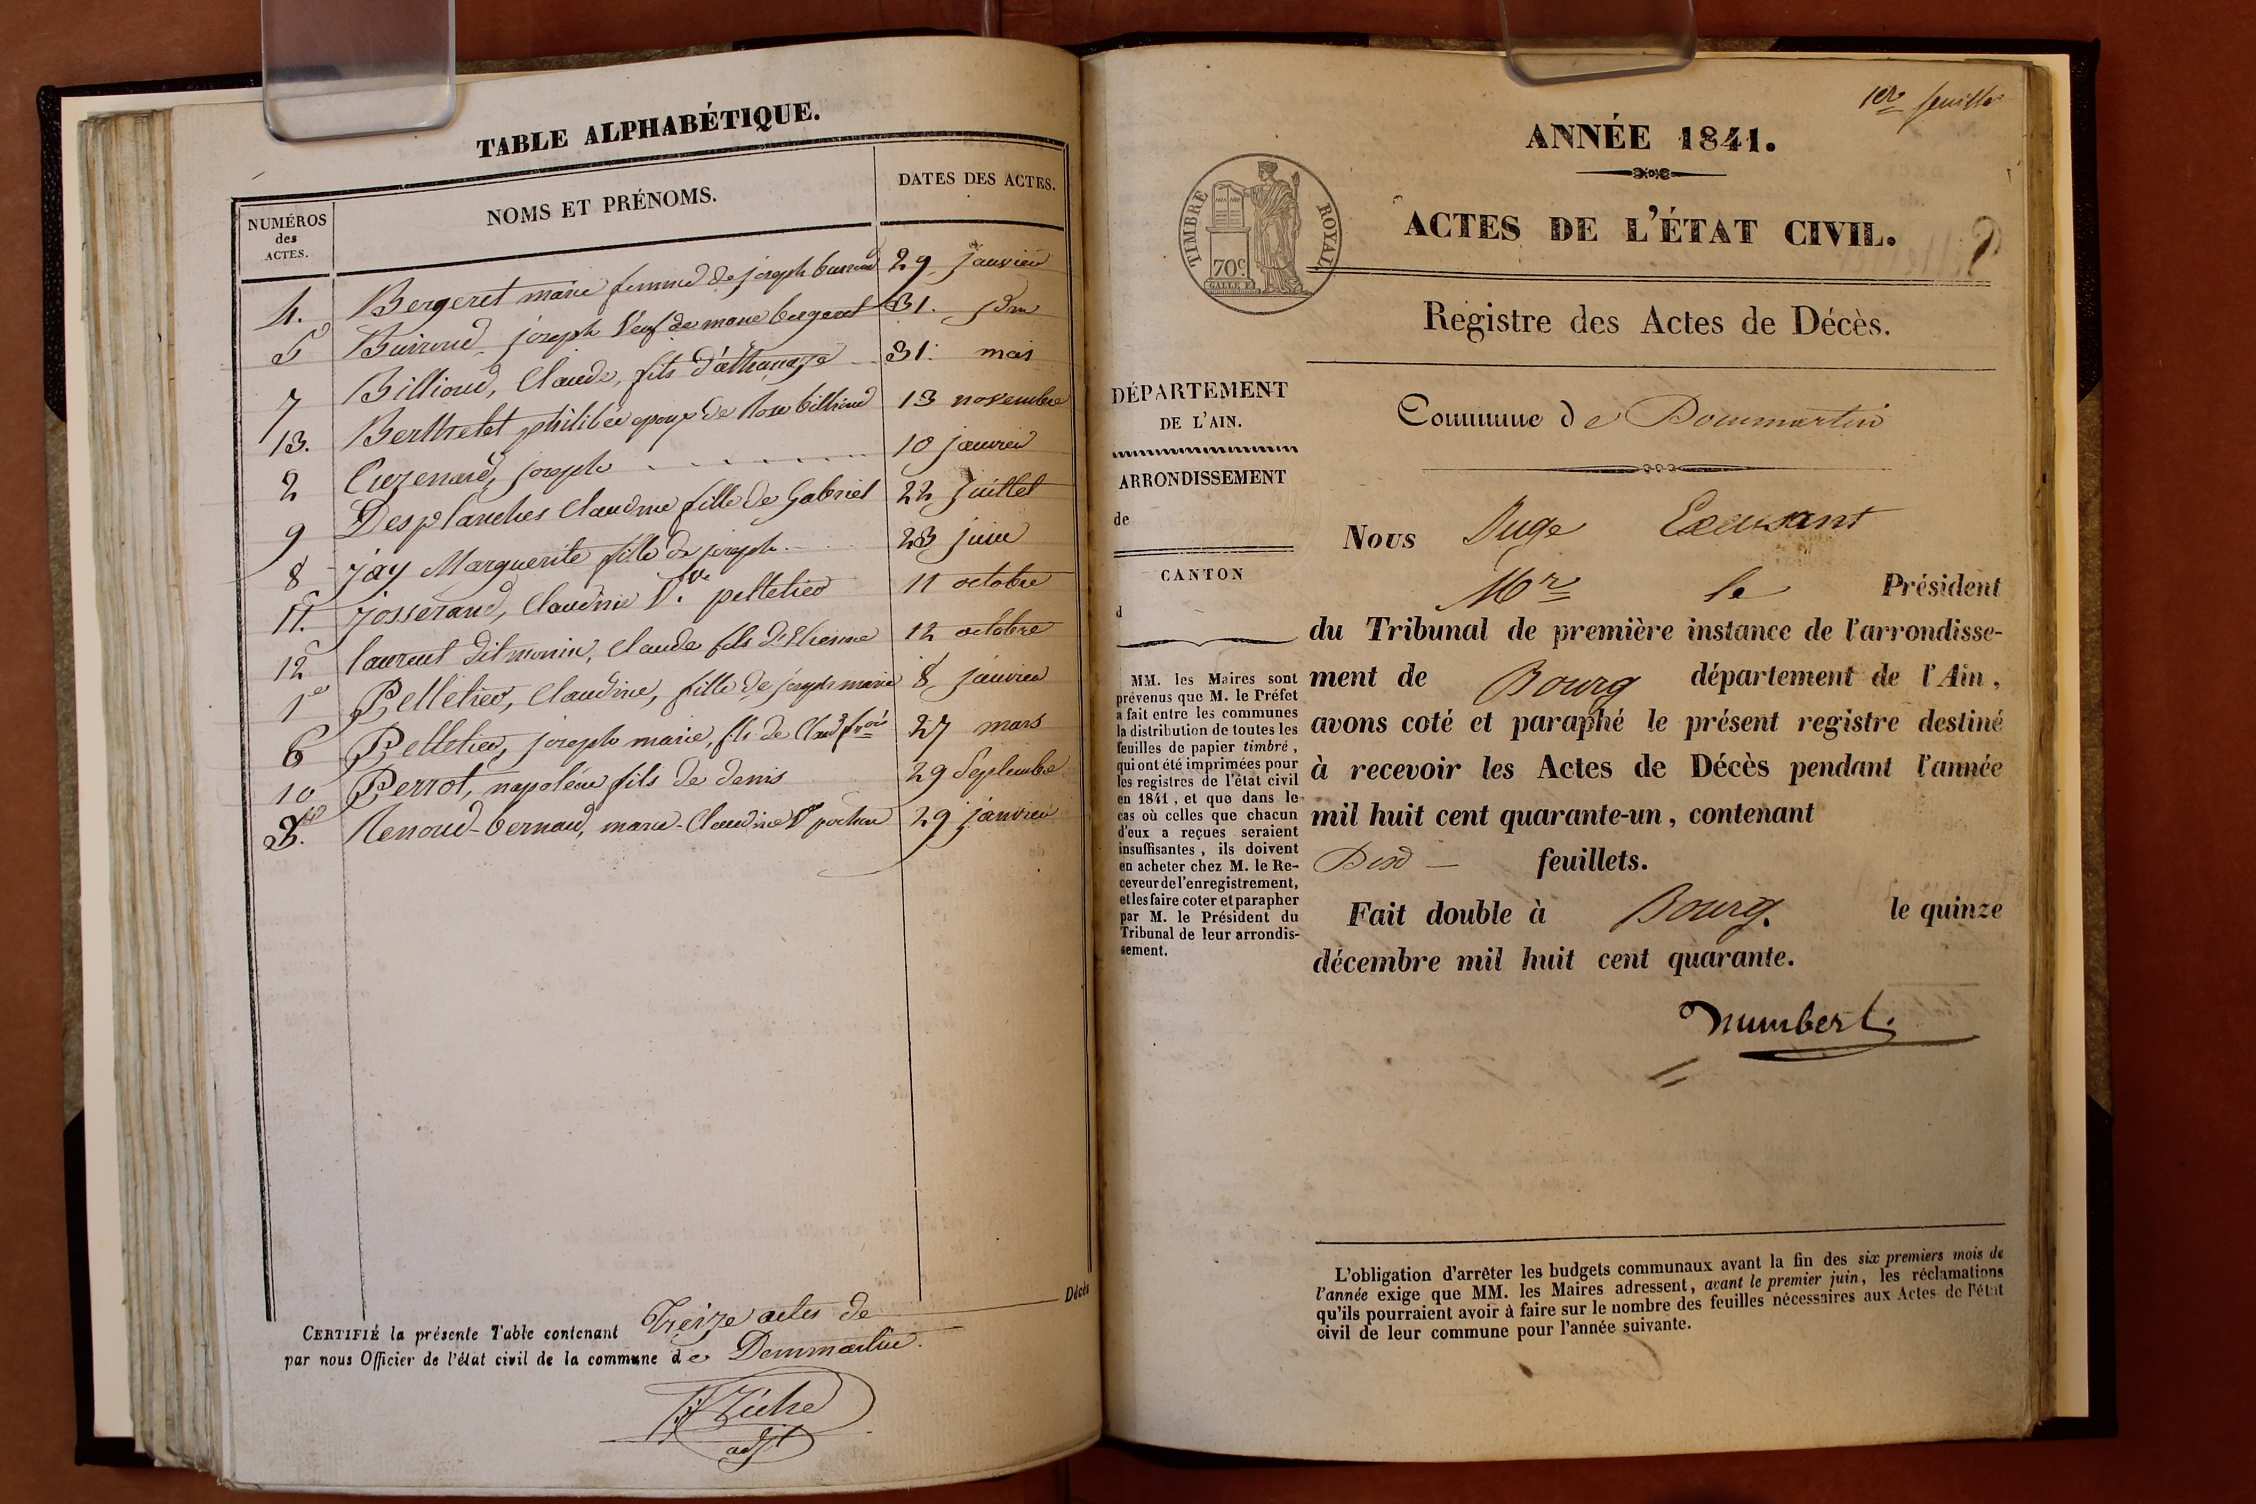 TABLE ALPHABÉTIQUE.
NUMÉROS des ACTES.
NOMS ET PRÉNOMS.
DATES DES ACTES.
4. Bergeret marie femme de joseph buirond 29 janvier
5 Buirond joseph Veuf de marie bergeret 31. dm
7 Billioud, Claude, fils d'athanaze 31. mai
13. Berthelet philibée epoux de Rose billioud 13 novembre
2 Cuzenard, joseph 10 janvier
9 Desplanches Claudine fille de Gabriel 22 juillet
8 jay Marguerite fille de joseph 23 juin
11. josserand, Claudine Vve pelletier 11 octobre
12 laurent dit monin, Claude fils d'Etienne 12 octobre
1er Pelletier, Claudine, fille de joseph marie 8 janvier
6 Pelletier, joseph marie, fls de Claude frois 27 mars
10 Perrot, napoléon fils de denis 29 Septembre
3. Renoud-bernaud, marie-Claudine Ve pochon 29 janvier
Décès
CERTIFIÉ la présente Table contenant Treize actes de
par nous Officier de l'état civil de la commune de Dommartin.
adjt
1er feuillet
ANNÉE 1841.
TIMBRE ROYAL
70c.
ACTES DE L'ÉTAT CIVIL.
Registre des Actes de Décès.
DÉPARTEMENT
DE L'AIN.
ARRONDISSEMENT
de
CANTON
d
MM. les Maires sont
prévenus que M. le Préfet
a fait entre les communes
la distribution de toutes les
feuilles de papier timbré,
qui ont été imprimées pour
les registres de l'état civil
en 1841, et que dans le
cas où celles que chacun
d'eux a reçues seraient
insuffisantes, ils doivent
en acheter chez M. le Re-
ceveur de l'enregistrement,
et les faire coter et parapher
par M. le Président du
Tribunal de leur arrondis-
sement.
Commune de Dommartin
Nous Juge Excusant
Mr le Président
du Tribunal de première instance de l'arrondisse-
ment de Bourg département de l'Ain,
avons coté et paraphé le présent registre destiné
à recevoir les Actes de Décès pendant l'année
mil huit cent quarante-un, contenant
feuillets.
Fait double à Bourg. le quinze
décembre mil huit cent quarante.
humbert.
L'obligation d'arrêter les budgets communaux avant la fin des six premiers mois de
l'année exige que MM. les Maires adressent, avant le premier juin, les réclamations
qu'ils pourraient avoir à faire sur le nombre des feuilles nécessaires aux Actes de l'état
civil de leur commune pour l'année suivante.